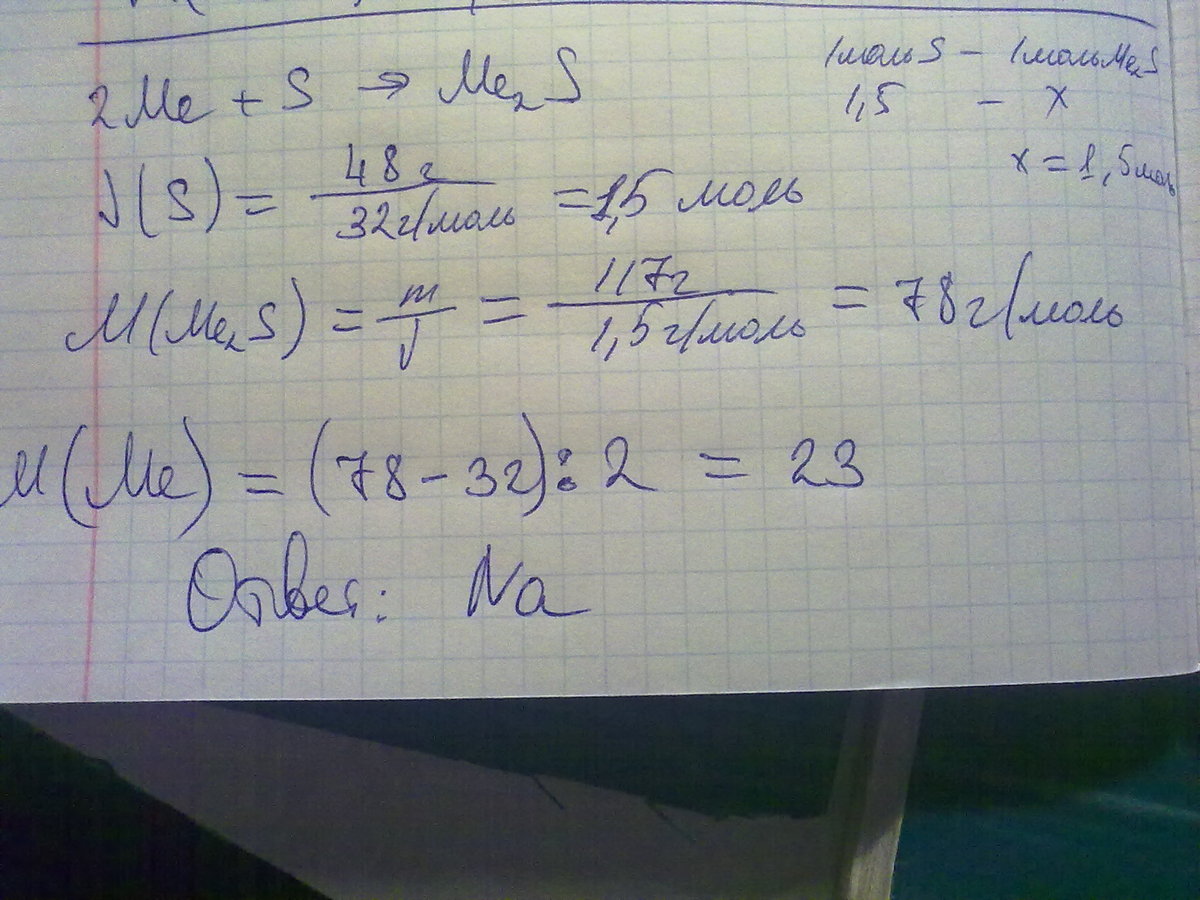 2Me + S → Me₂S
1моль S – 1моль Me₂S
1,5 – x
x = 1,5моль
ν(S) = 48г / 32г/моль = 1,5 моль
M(Me₂S) = m / ν = 117г / 1,5г/моль = 78г/моль
M(Me) = (78 - 32) : 2 = 23
Ответ: Na